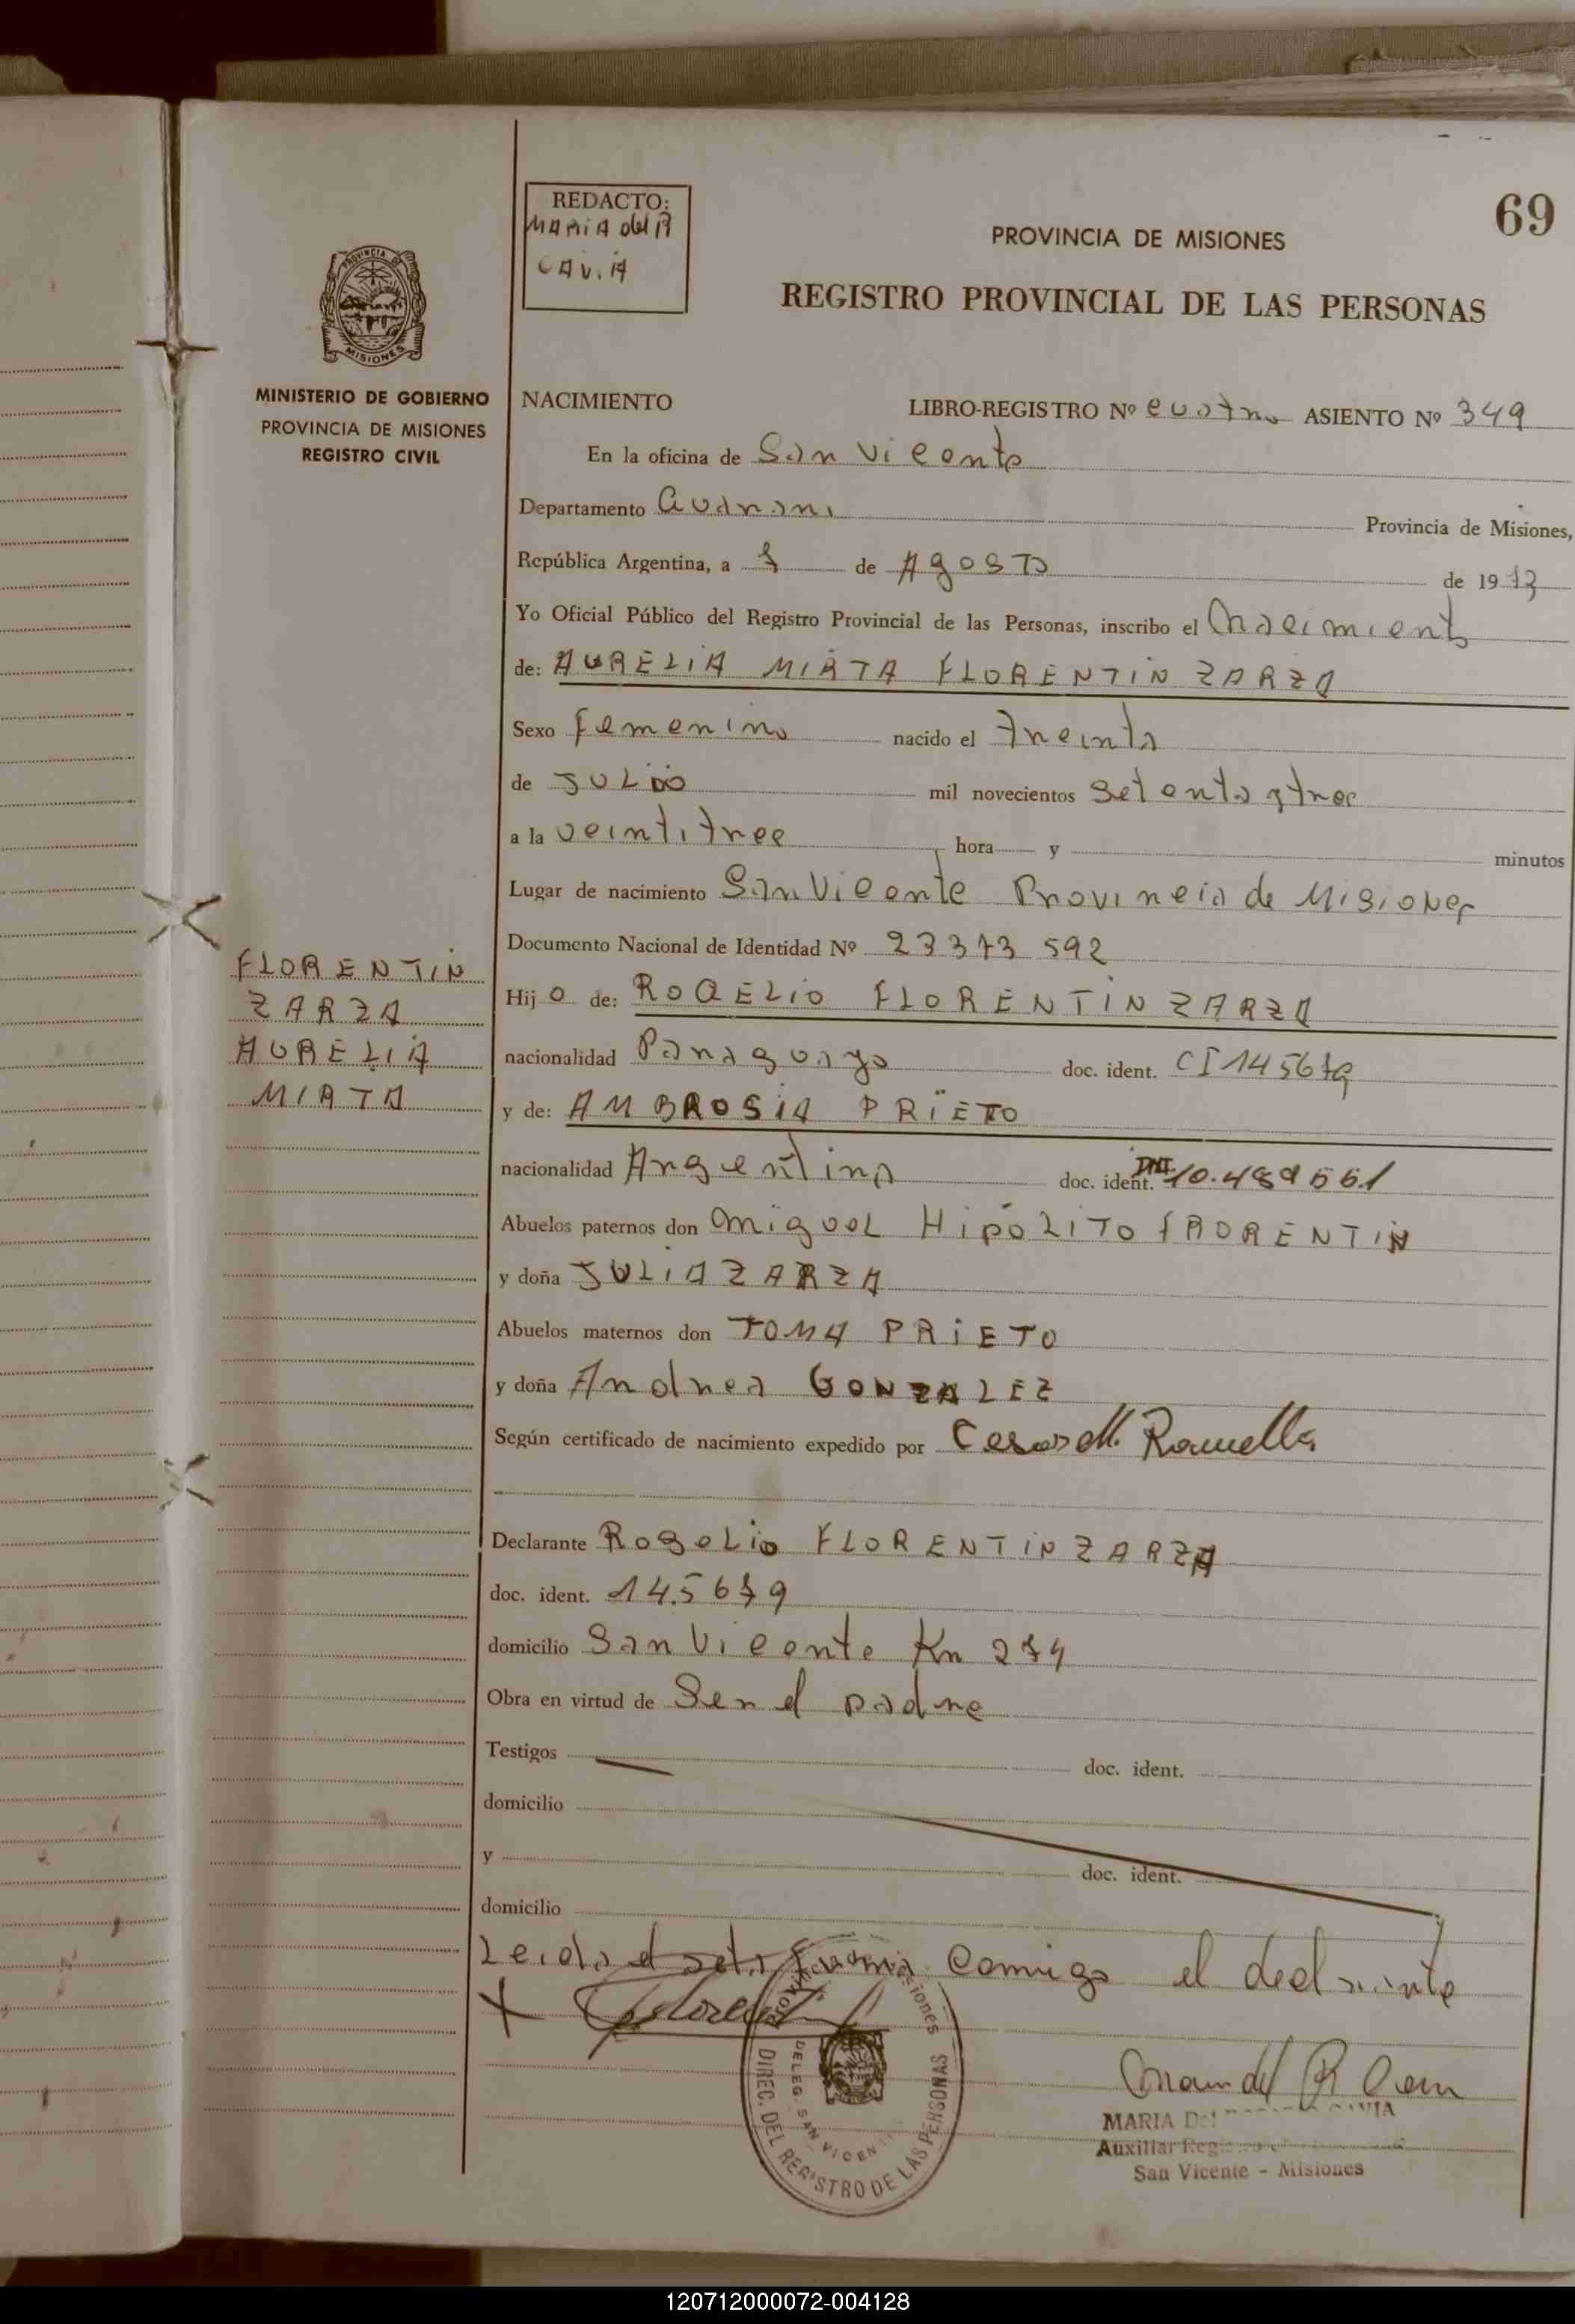 69
REDACTO:
MARIA del R
CAVIA
PROVINCIA DE MISIONES
REGISTRO PROVINCIAL DE LAS PERSONAS
PROVINCIA DE
MISIONES
MINISTERIO DE GOBIERNO
PROVINCIA DE MISIONES
REGISTRO CIVIL
NACIMIENTO LIBRO-REGISTRO Nº cuatro ASIENTO Nº 349
En la oficina de San Vicente
Departamento Guarani Provincia de Misiones,
República Argentina, a de AgosTo de 1973
Yo Oficial Público del Registro Provincial de las Personas, inscribo el nacimiento
de: AURELIA MIRTA FLORENTIN ZARZA
Sexo femenino nacido el treinta
de JULIO mil novecientos setenta y tres
a la veintitres hora y minutos
Lugar de nacimiento San Vicente Provincia de Misiones
Documento Nacional de Identidad Nº 23373592
FLORENTIN
ZARZA
AURELIA
MIRTA
Hij o de: ROGELIO FLORENTIN ZARZA
nacionalidad Paraguayo doc. ident. CI 145679
y de: AMBROSIA PRIETO
nacionalidad Argentina doc. ident. DNI 10.489561
Abuelos paternos don miguel HipóLITO fRORENTIN
y doña JULIA ZARZA
Abuelos maternos don TOMA PRIETO
y doña Andrea GONZALEZ
Según certificado de nacimiento expedido por Cesar M. Ramella
Declarante RogeLio FLORENTIN ZARZA
doc. ident. 145679
domicilio San Vicente Km 274
Obra en virtud de Ser el padre
Testigos doc. ident.
domicilio
y doc. ident.
domicilio
Leida el acta firma comigo el declarante
DIREC. DEL REGISTRO DE LAS PERSONAS
DELEG. SAN VICENTE
MARIA DEL CAVIA
Auxiliar
San Vicente - Misiones
120712000072-004128